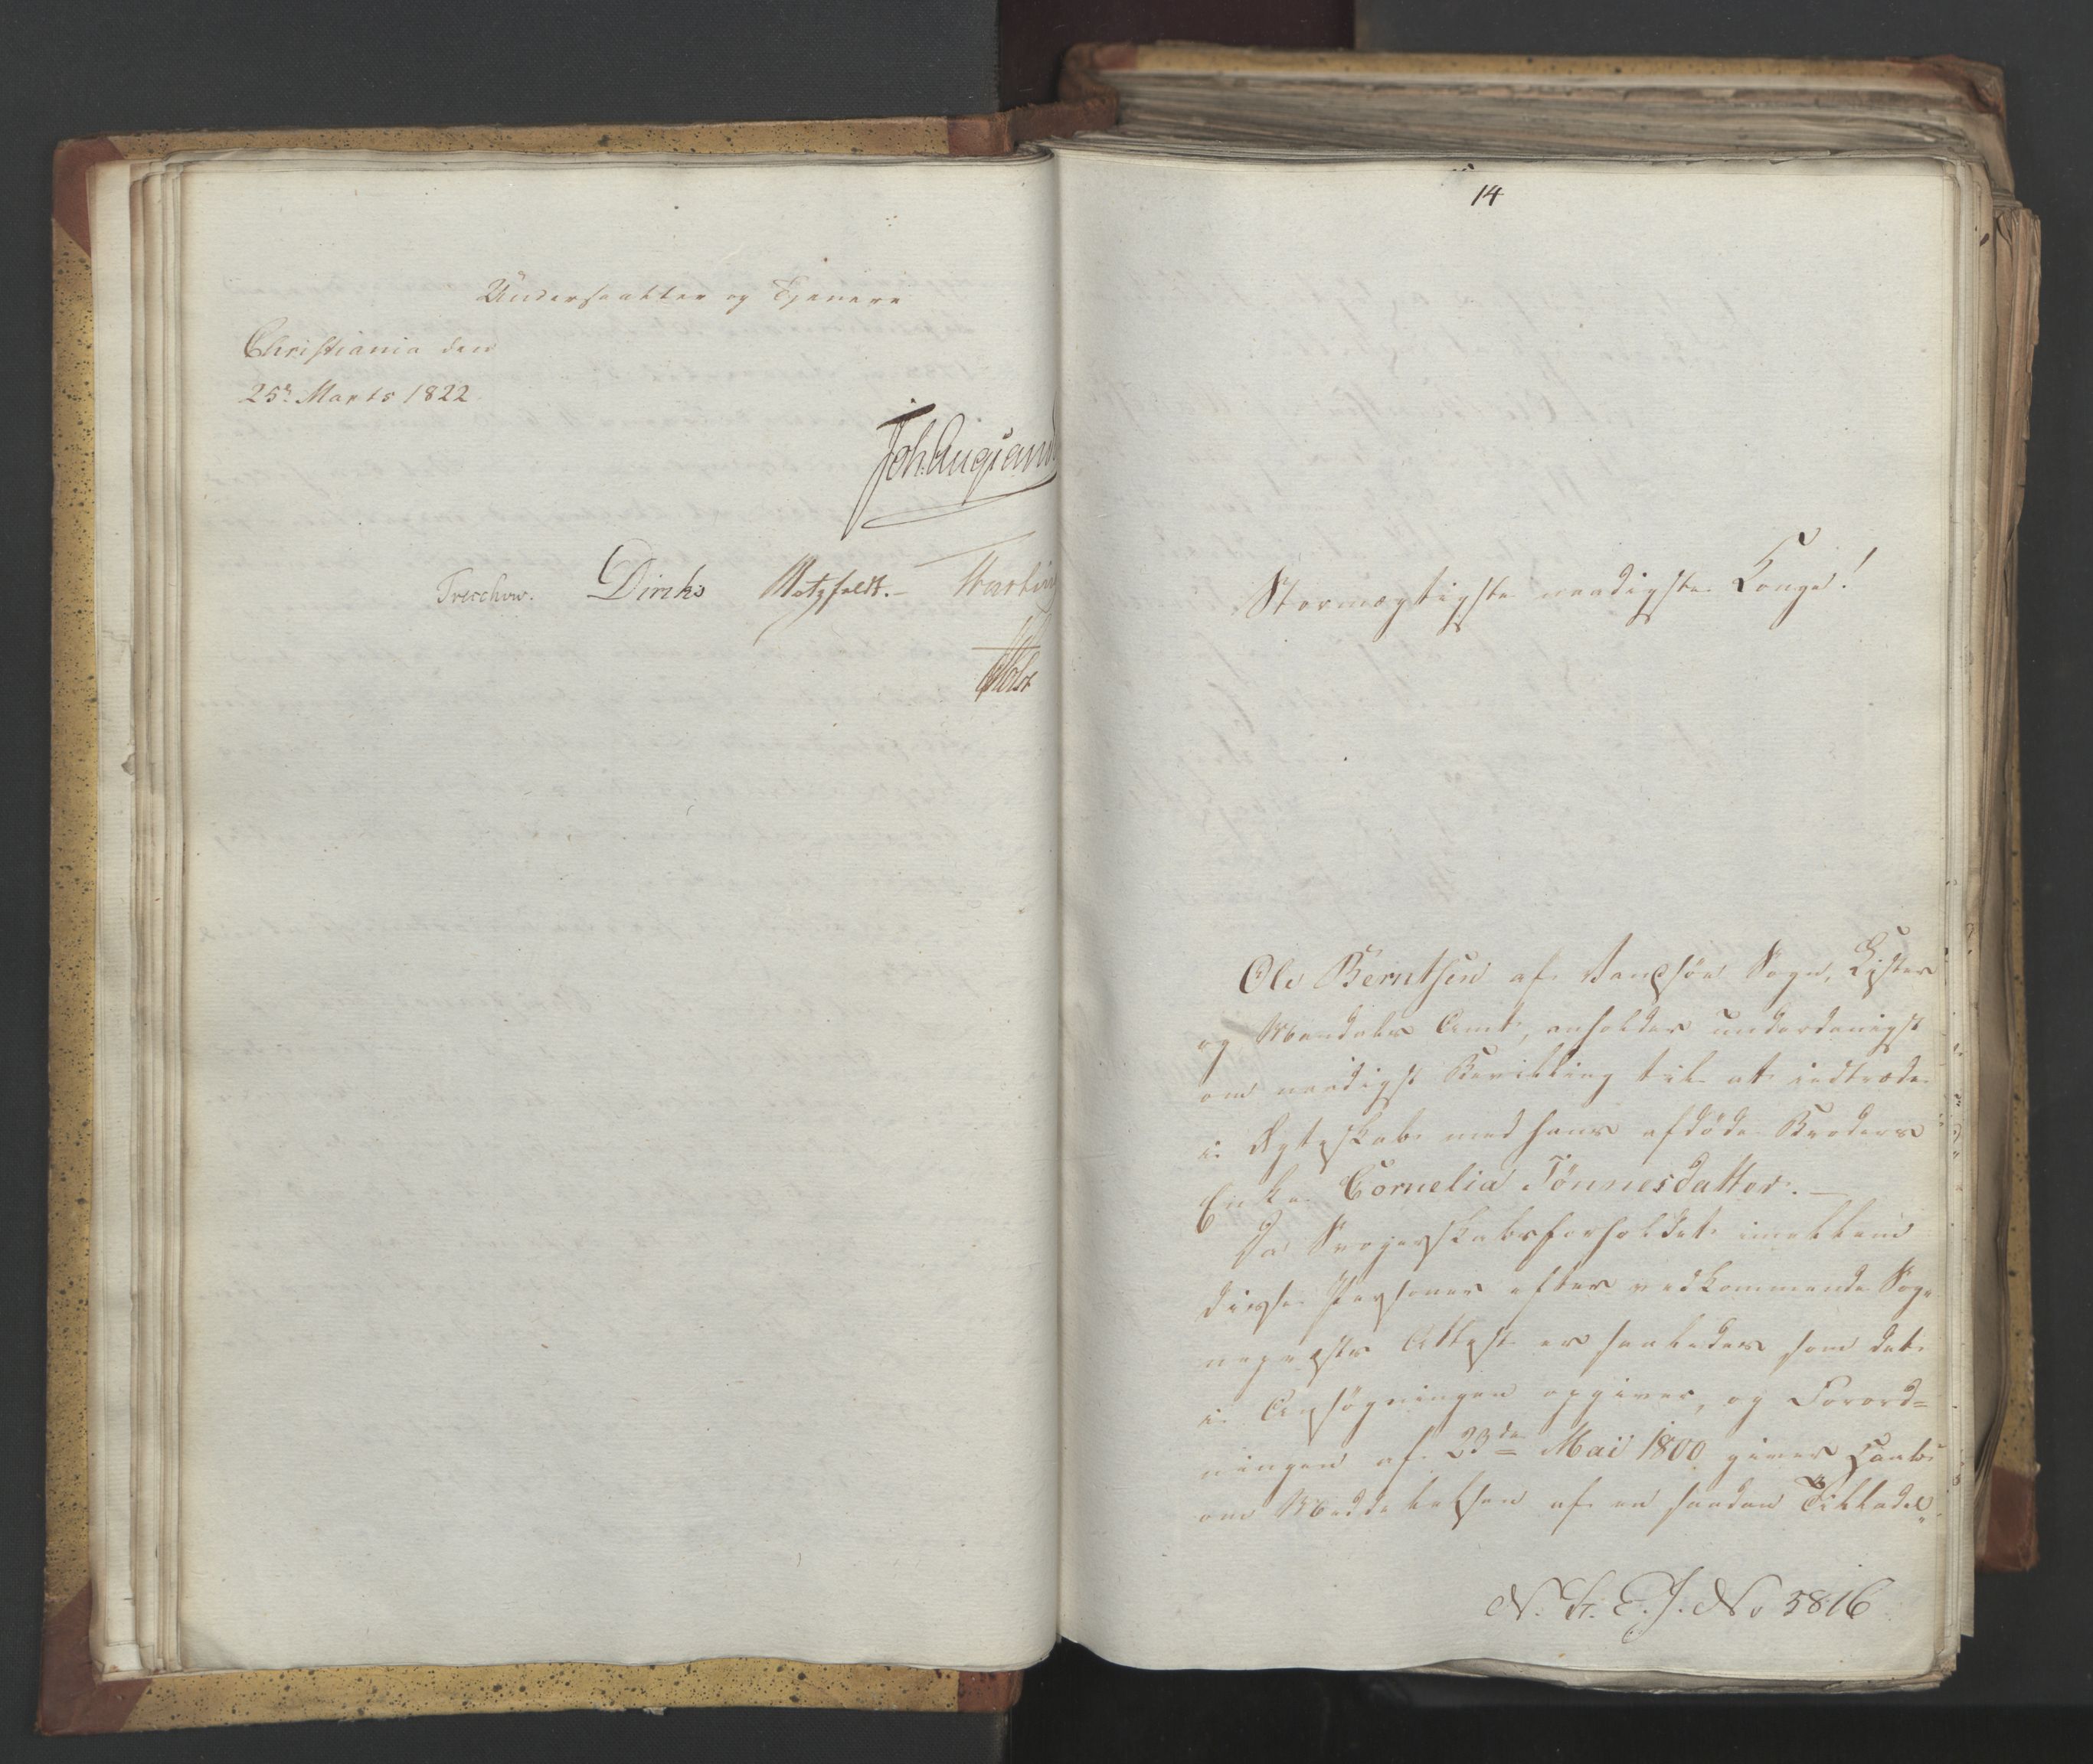 Undersaatter og Tjenere
Christiania den
25de Marts 1822
Joh. Aug Sand
Treschow. Diriks Motzfeldt. –
Holst
14
Stormægtigste naadigste Konge!
Ole Berntsen af Vanse Sogn, Lister
og Mandals Amt, anholder underdanigst
om naadigst Bevilling til at indtræde
i Ægteskab med hans afdøde Broders
Enke Cornelia Tønnesdatter. –
Da Svogerskabsforholdet imellem
disse Personer efter vedkommende Sog-
nepræsts Attest er saaledes som det
i Ansøgningen opgives, og Forord=
ningen af 23de Mai 1800 giver Haab
om Meddelelsen af en saadan Tilladel-
N. R. E. J. No 5816